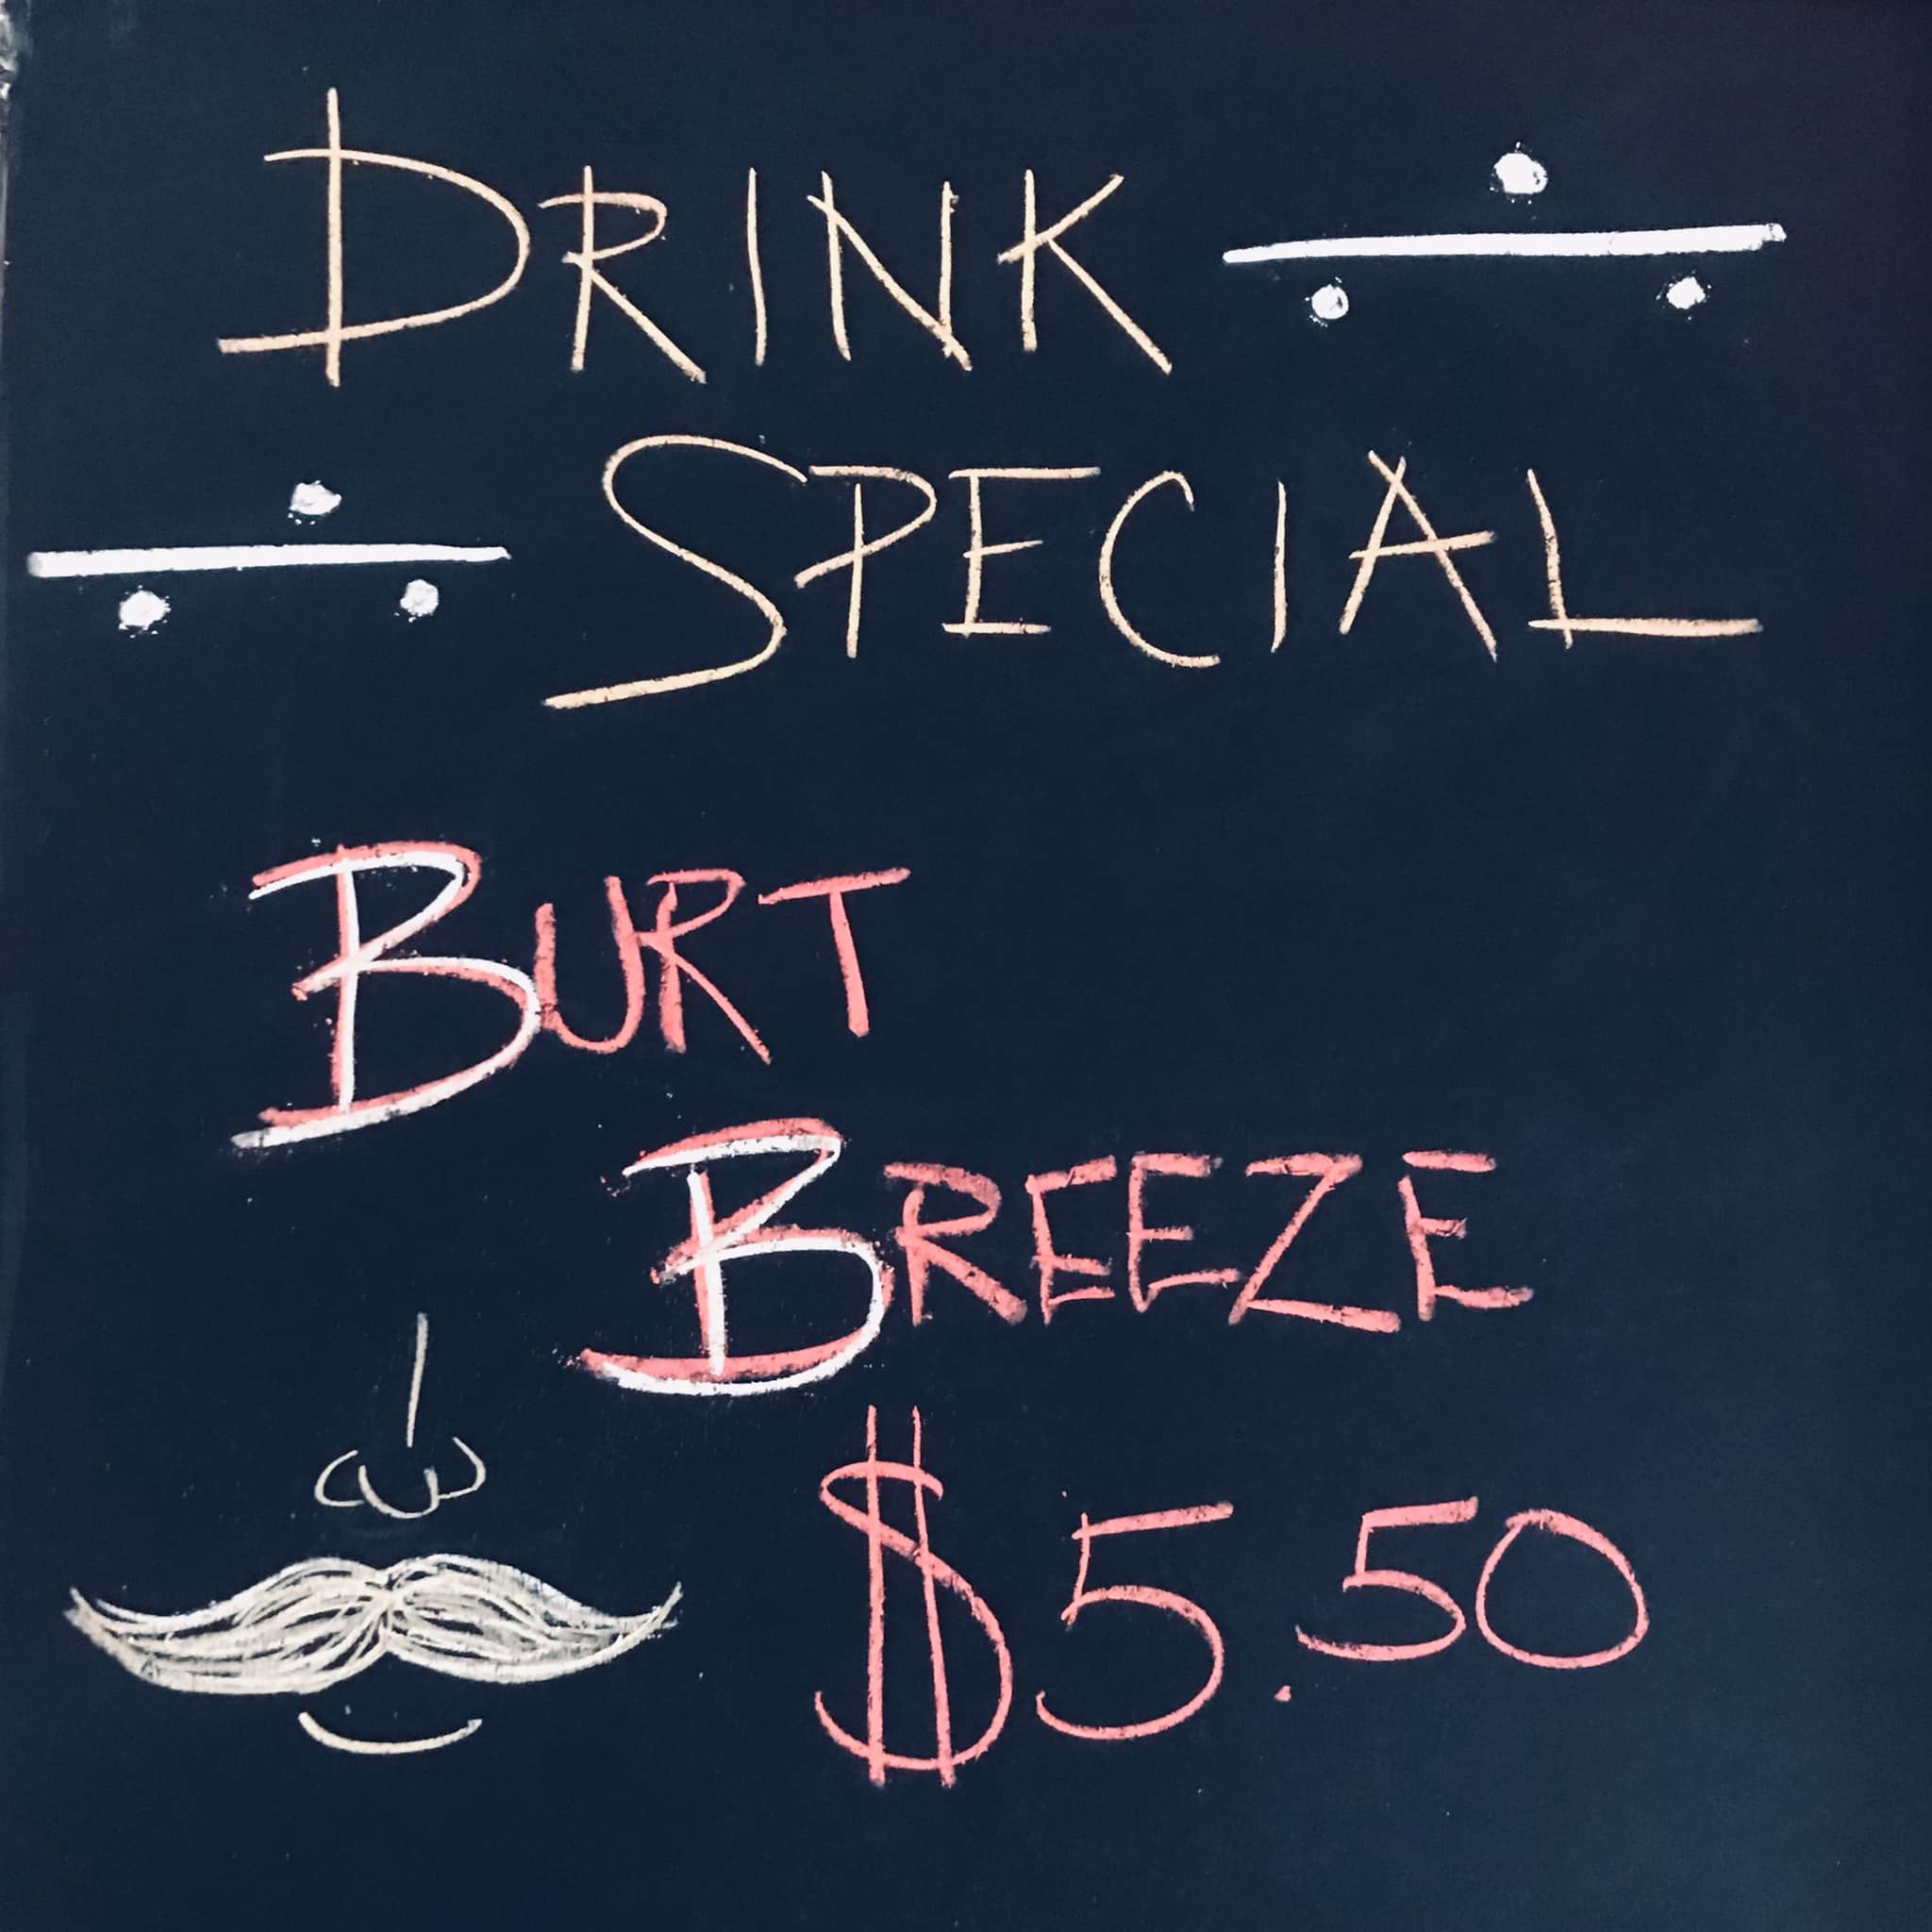 DRINK
SPECIAL
BURT
BREEZE
$5.50